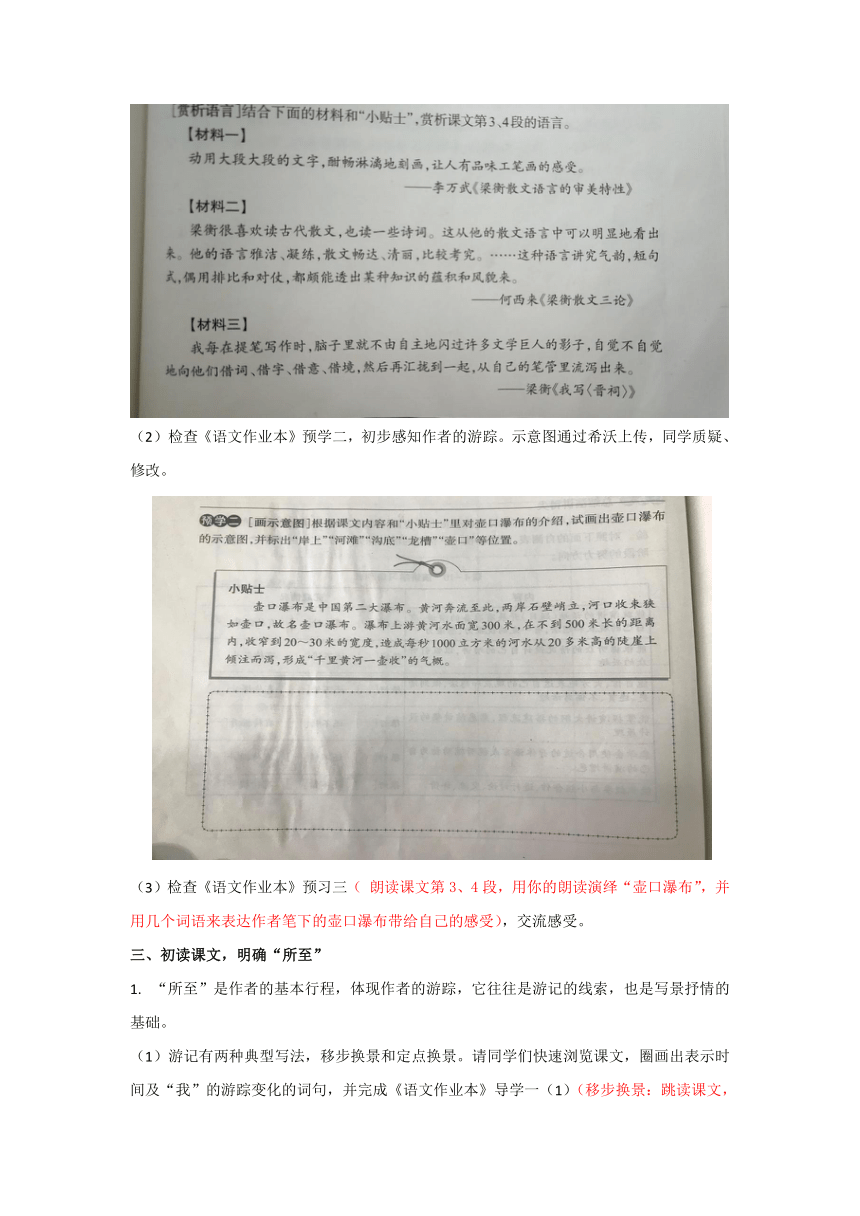 [赏析语言]结合下面的材料和“小贴士”,赏析课文第3、4段的语言。
【材料一】
动用大段大段的文字,酣畅淋漓地刻画,让人有品味工笔画的感受。
——李万武《梁衡散文语言的审美特性》
【材料二】
梁衡很喜欢读古代散文,也读一些诗词。这从他的散文语言中可以明显地看出
来。他的语言雅洁、凝练,散文畅达、清丽,比较考究。……这种语言讲究气韵,短句
式,偶用排比和对仗,都颇能透出某种知识的蕴积和风貌来。
——何西来《梁衡散文三论》
【材料三】
我每在提笔写作时,脑子里就不由自主地闪过许多文学巨人的影子,自觉不自觉
地向他们借词、借字、借意、借境,然后再汇拢到一起,从自己的笔管里流泻出来。
——梁衡《我写〈晋祠〉》
（2）检查《语文作业本》预学二，初步感知作者的游踪。示意图通过希沃上传，同学质疑、
修改。
预学二 [画示意图]根据课文内容和“小贴士”里对壶口瀑布的介绍,试画出壶口瀑布
的示意图,并标出“岸上”“河滩”“沟底”“龙槽”“壶口”等位置。
小贴士
壶口瀑布是中国第二大瀑布。黄河奔流至此,两岸石壁峭立,河口收束狭
如壶口,故名壶口瀑布。瀑布上游黄河水面宽300米,在不到500米长的距离
内,收窄到20～30米的宽度,造成每秒1000立方米的河水从20多米高的陡崖上
倾注而泻,形成“千里黄河一壶收”的气概。
（3）检查《语文作业本》预习三（ 朗读课文第 3、4 段，用你的朗读演绎“壶口瀑布”，并
用几个词语来表达作者笔下的壶口瀑布带给自己的感受），交流感受。
三、初读课文，明确“所至”
1. “所至”是作者的基本行程，体现作者的游踪，它往往是游记的线索，也是写景抒情的
基础。
（1）游记有两种典型写法，移步换景和定点换景。请同学们快速浏览课文，圈画出表示时
间及“我”的游踪变化的词句，并完成《语文作业本》导学一（1）（移步换景：跳读课文，